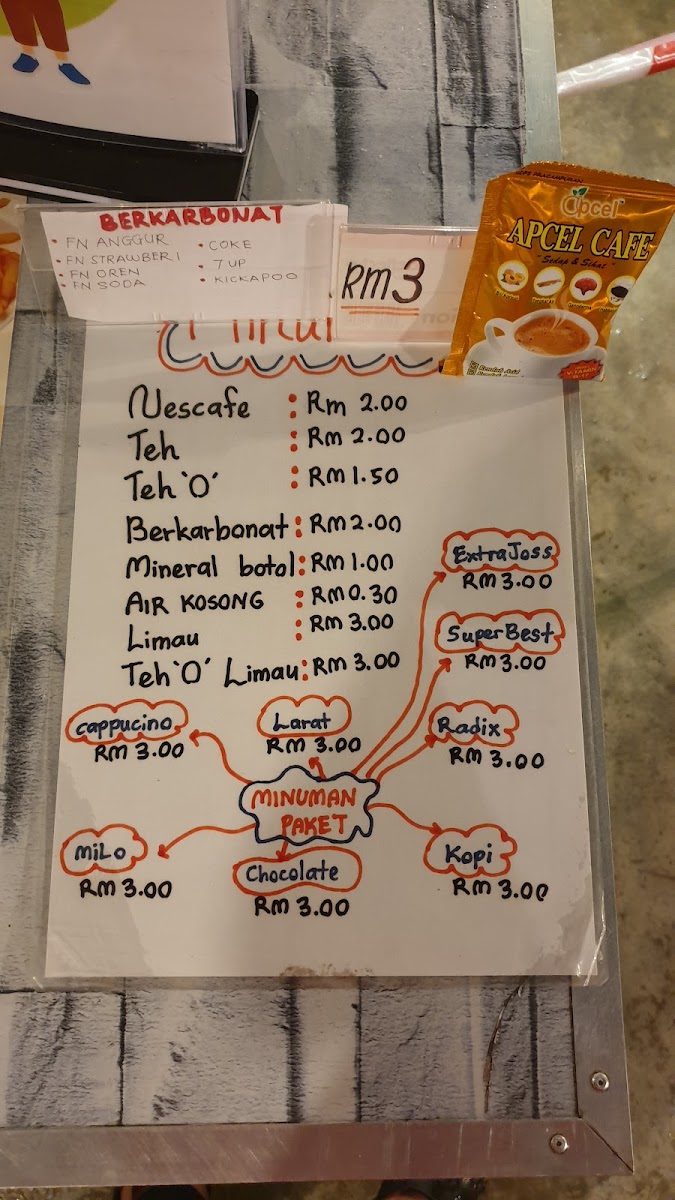 BERKARBONAT
• FN ANGGUR
• FN STRAWBERI
• FN OREN
• FN SODA
• COKE
• 7 UP
• KICKAPOO
RM3
apcel
APCEL CAFE
"Sedap & Sihat"
Nescafe : Rm 2.00
Teh : Rm 2.00
Teh 'O' : Rm 1.50
Berkarbonat : Rm 2.00
Mineral botol : Rm 1.00
AIR KOSONG : Rm 0.30
Limau : Rm 3.00
Teh 'O' Limau : Rm 3.00
ExtraJoss
RM 3.00
SuperBest
RM 3.00
cappucino
RM 3.00
Larat
RM 3.00
Radix
RM 3.00
MINUMAN
PAKET
MiLo
RM 3.00
Chocolate
RM 3.00
Kopi
RM 3.00